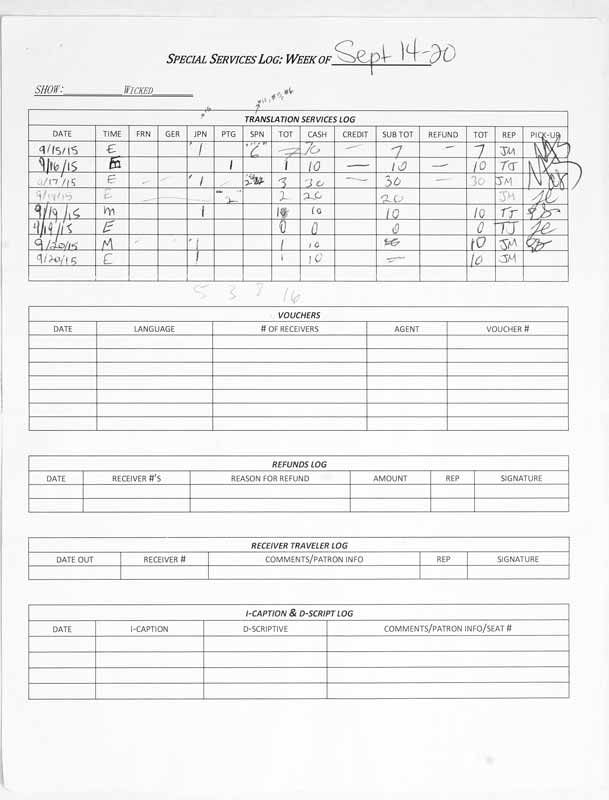 SPECIAL SERVICES LOG: WEEK OF Sept 14-20
SHOW: WICKED
#15
TRANSLATION SERVICES LOG
DATE TIME FRN GER JPN PTG SPN TOT CASH CREDIT SUB TOT REFUND TOT REP PICK-UP
9/15/15 E 1 6 7 70 — 7 — 7 JM
9/16/15 E 1 1 10 — 10 — 10 TJ
9/17/15 E - - 1 - 2 3 30 — 30 — 30 JM
E 2 2 20 20 JM
9/19/15 m 1 1 10 10 10 TJ
9/19/15 E 0 0 0 0 TJ
9/20/15 M 1 1 10 10 JM
9/20/15 E 1 1 10 — 10 JM
5 3 8 16
VOUCHERS
DATE LANGUAGE # OF RECEIVERS AGENT VOUCHER #
REFUNDS LOG
DATE RECEIVER #'S REASON FOR REFUND AMOUNT REP SIGNATURE
RECEIVER TRAVELER LOG
DATE OUT RECEIVER # COMMENTS/PATRON INFO REP SIGNATURE
I-CAPTION & D-SCRIPT LOG
DATE I-CAPTION D-SCRIPTIVE COMMENTS/PATRON INFO/SEAT #